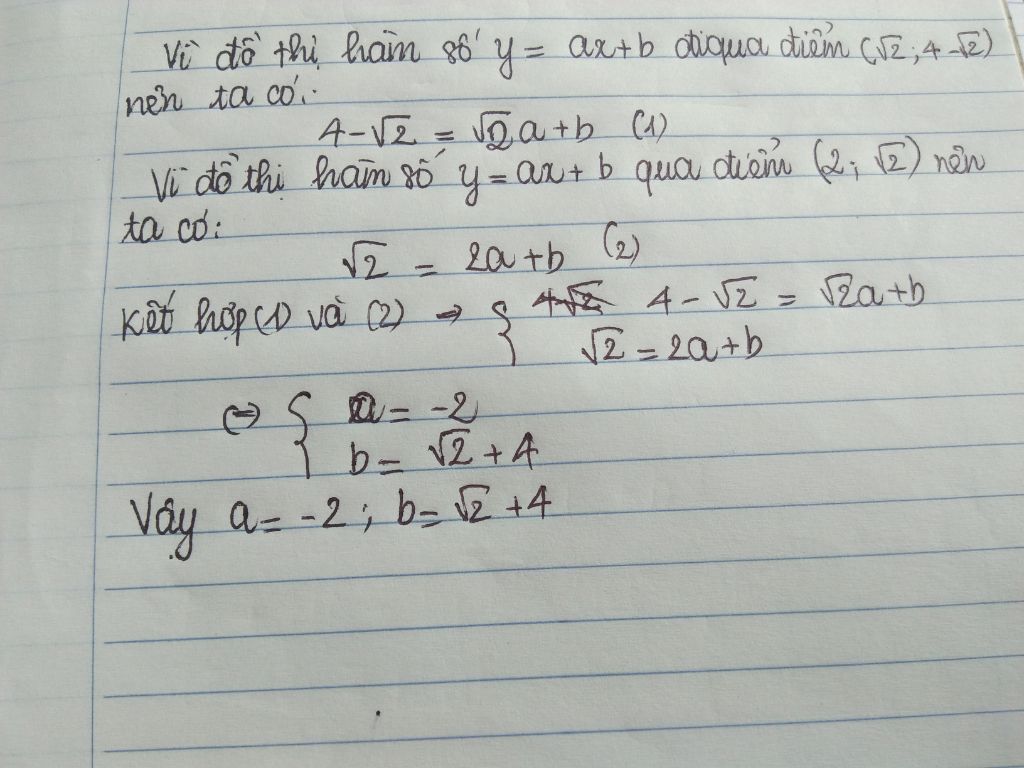 Vì đồ thị hàm số y = ax+b điqua điểm (√2; 4-√2)
nên ta có:
4-√2 = √2a+b (1)
Vì đồ thị hàm số y=ax+b qua điểm (2; √2) nên
ta có:
√2 = 2a+b (2)
Kết hợp (1) và (2) → { 4-√2 4-√2 = √2a+b
√2 = 2a+b
⇔ { a = -2
b = √2+4
Vậy a = -2; b = √2+4